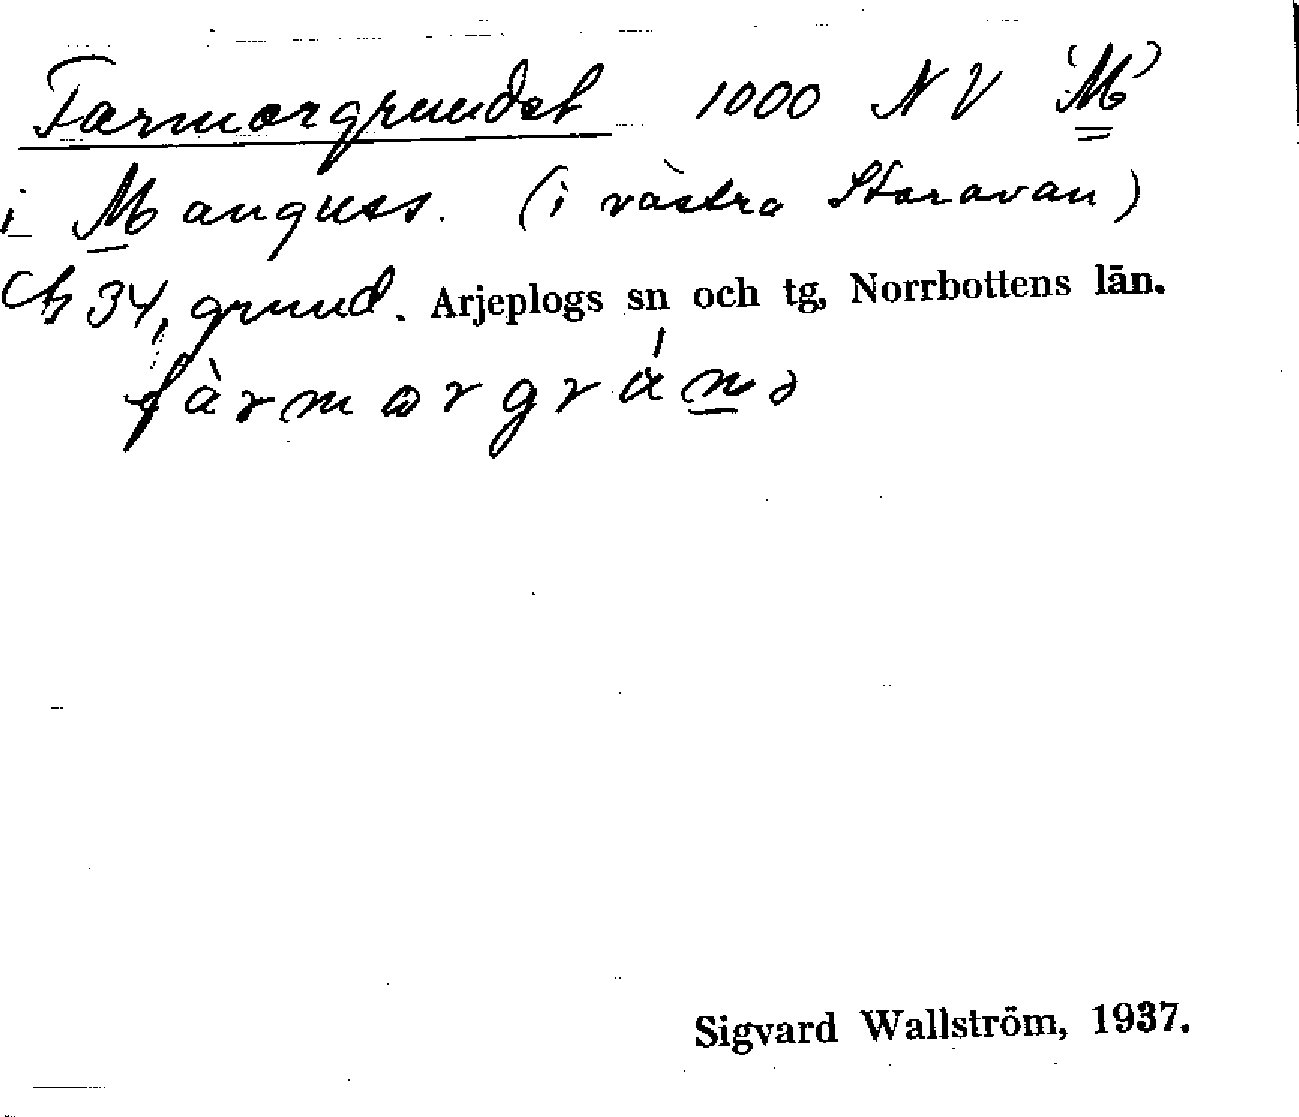 Farmorgrundet 1000 NV (M)
i Manguss. (i västra Storavan)
34, grund. Arjeplogs sn och tg, Norrbottens län.
fàrmorgránd
Sigvard Wallström, 1937.